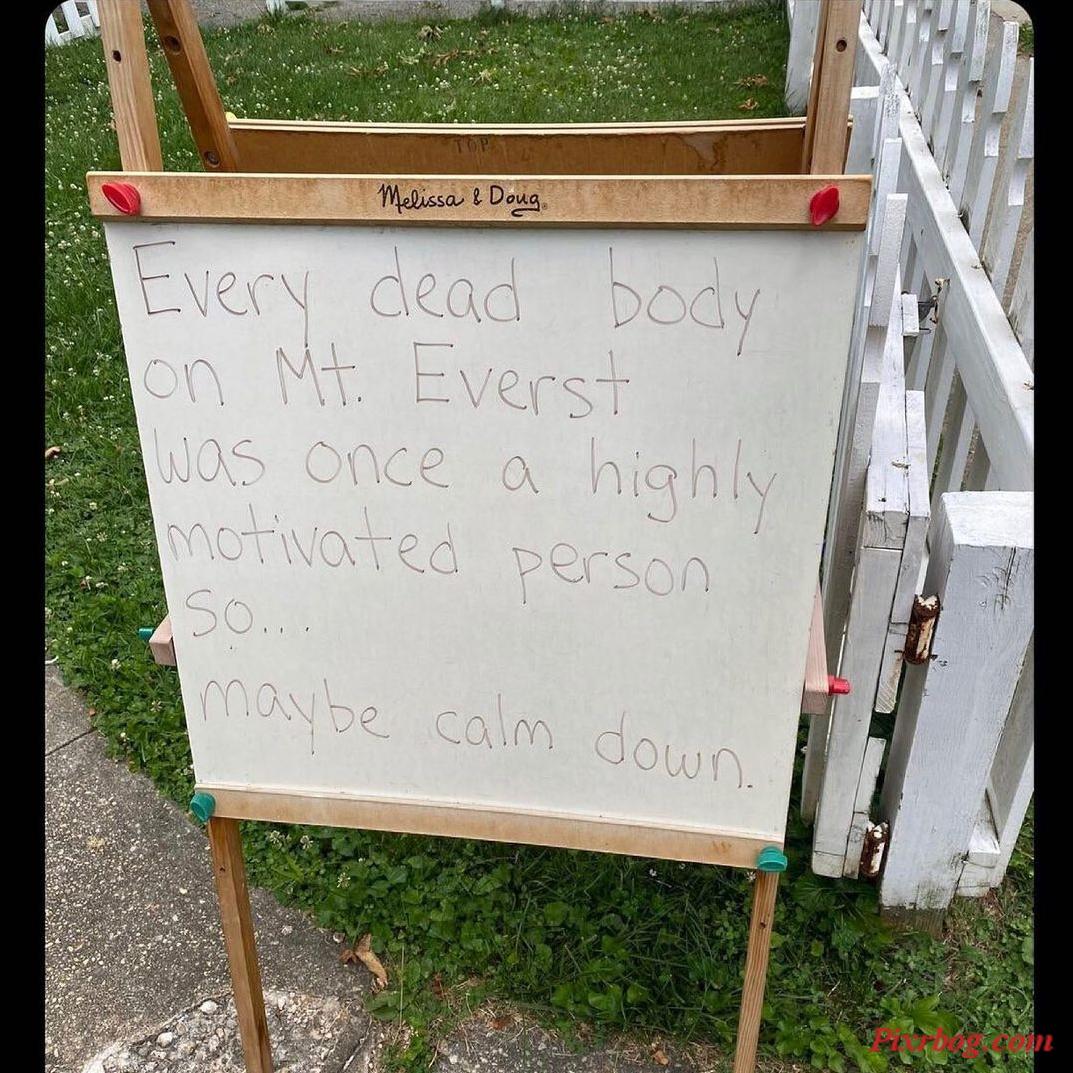 TOP
Melissa & Doug®
Every dead body
on Mt. Everst
was once a highly
motivated person
so...
maybe calm down.
Pixrbog.com